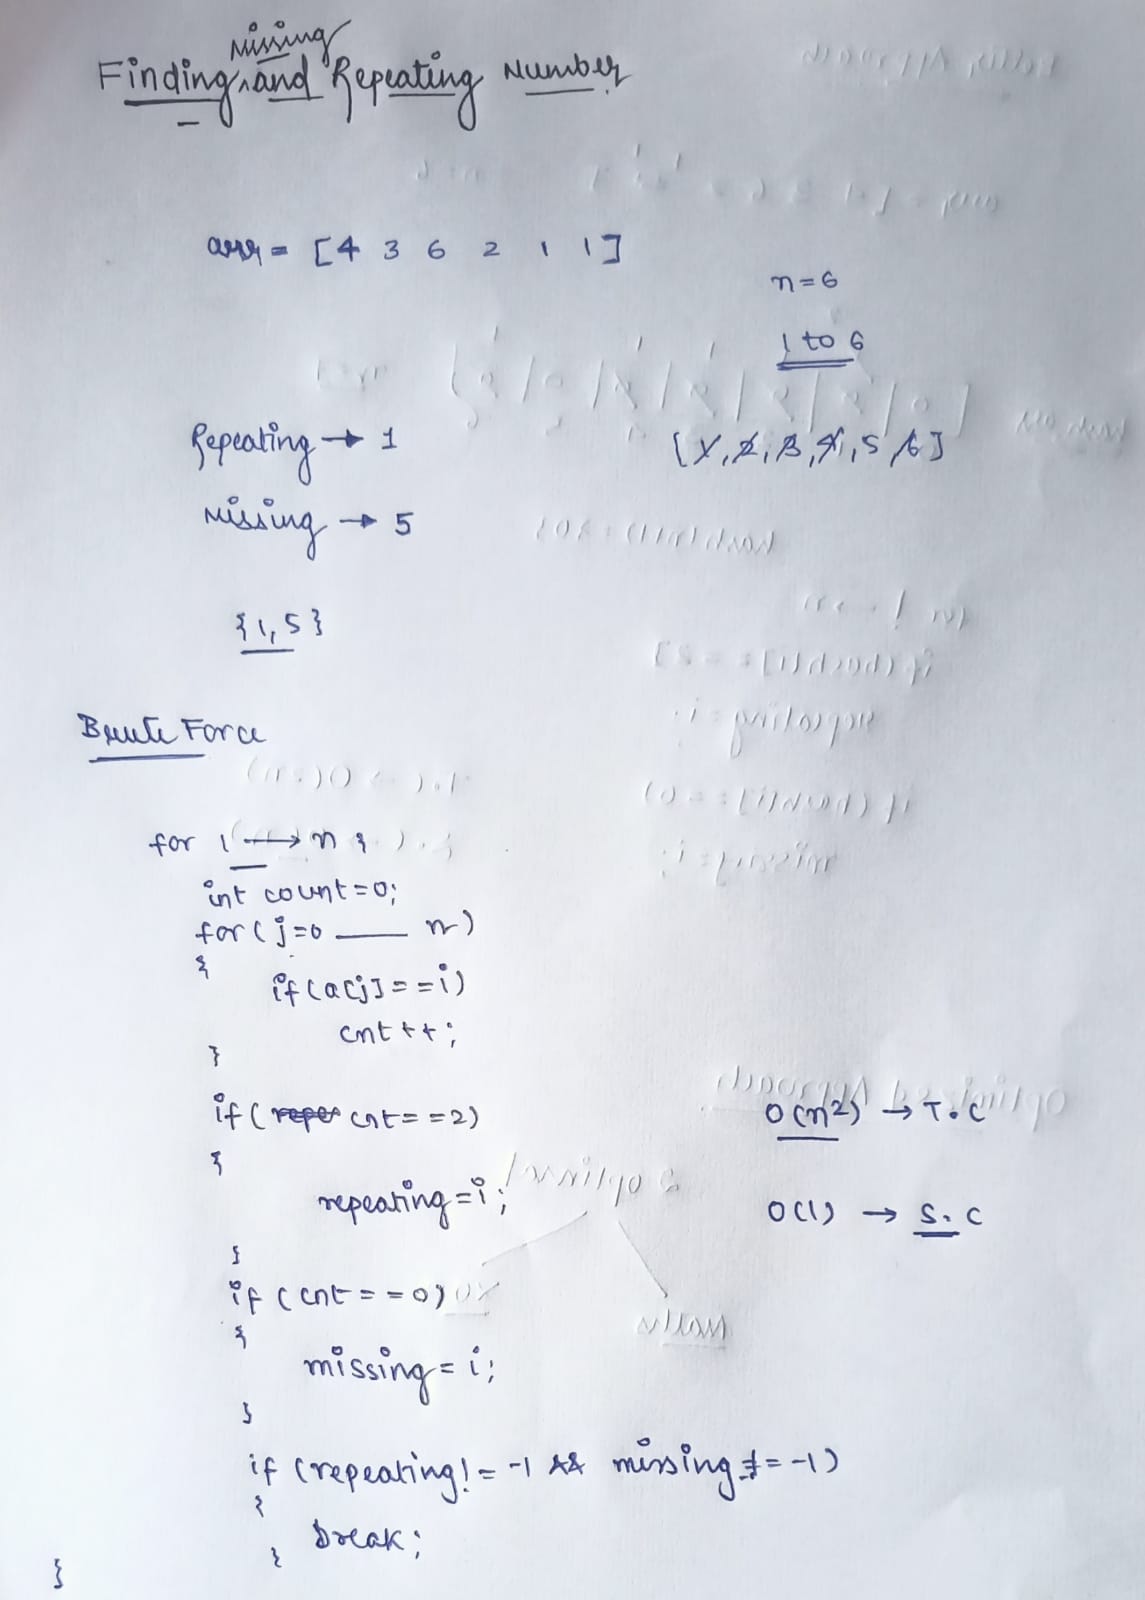 Finding missing and Repeating Number
arr = [4 3 6 2 1 1]
n=6
1 to 6
Repeating → 1
[1,2,3,4,5,6]
missing → 5
{1,5}
Brute Force
for 1 → n {
int count=0;
for(j=0 — n)
{
if(a[j]==i)
cnt++;
}
if(cnt==2)
O(n2) → T.C
{
repeating=i;
O(1) → S.C
}
if(cnt==0)
{
missing=i;
}
if(repeating!=-1 && missing!=-1)
{
break;
}
}